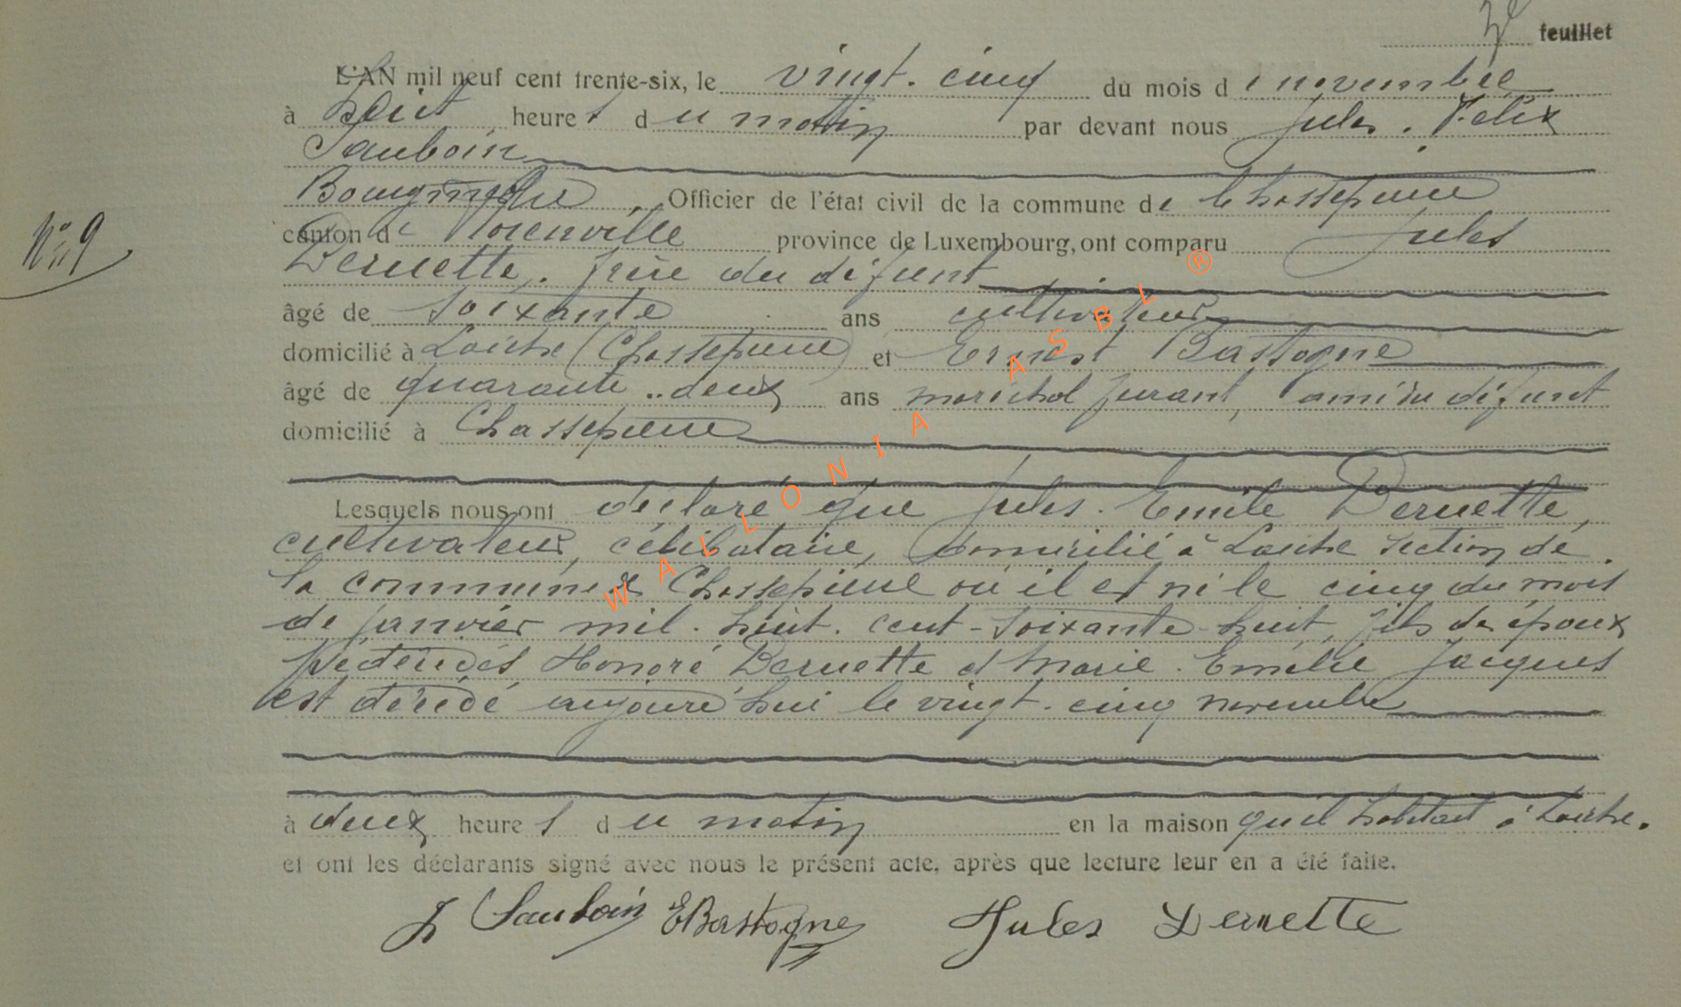 feuillet
L'AN mil neuf cent trente-six, le vingt-cinq du mois de novembre
à huit heures du matin par devant nous Jules. Félix
Sauboin
Bourgmestre, Officier de l'état civil de la commune de Chassepierre
canton de Florenville province de Luxembourg, ont comparu Jules
N° 9
Deruette, frère du défunt
âgé de soixante ans cultivateur
domicilié à Laiche (Chassepierre) et Ernest Bastogne
âgé de quarante-deux ans maréchal ferrant, ami du défunt
domicilié à Chassepierre
Lesquels nous ont déclaré que Jules. Emile Deruette,
cultivateur, célibataire, domicilié à Laiche section de
la commune de Chassepierre où il est né le cinq du mois
de janvier mil-huit-cent-soixante-huit, fils des époux
décédés Honoré Deruette et Marie-Emélie Jacques
est décédé aujourd'hui le vingt-cinq novembre
à deux heures du matin en la maison qu'il habitait à Laiche.
et ont les déclarants signé avec nous le présent acte, après que lecture leur en a été faite.
J Sauboin EBastogne Jules Deruette
WALLONIA ASBL ®